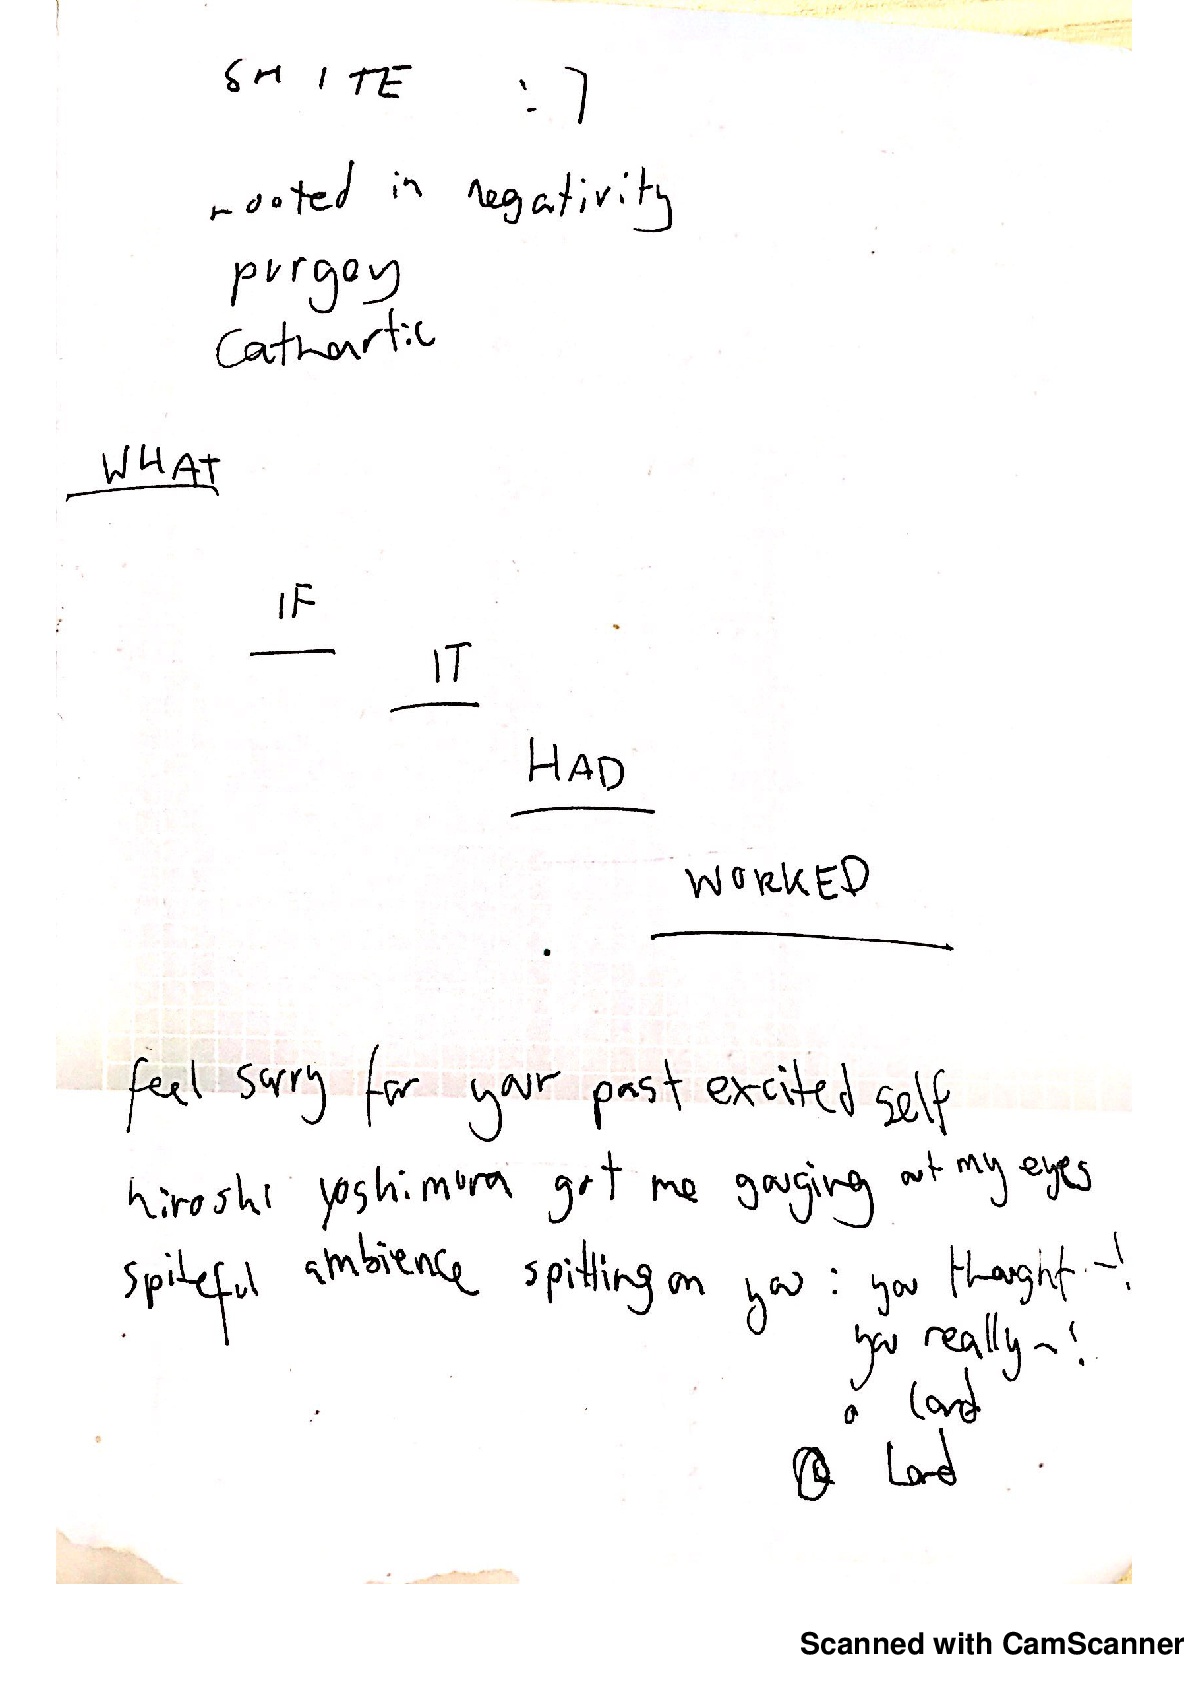 SMITE :]
rooted in negativity
purgey
Cathartic
WHAT
IF
IT
HAD
WORKED
feel sorry for your past excited self
hiroshi yoshimura got me gouging out my eyes
spiteful ambience spitting on you : you thought ~!
you really ~!
a Lord
a Lord
Scanned with CamScanner